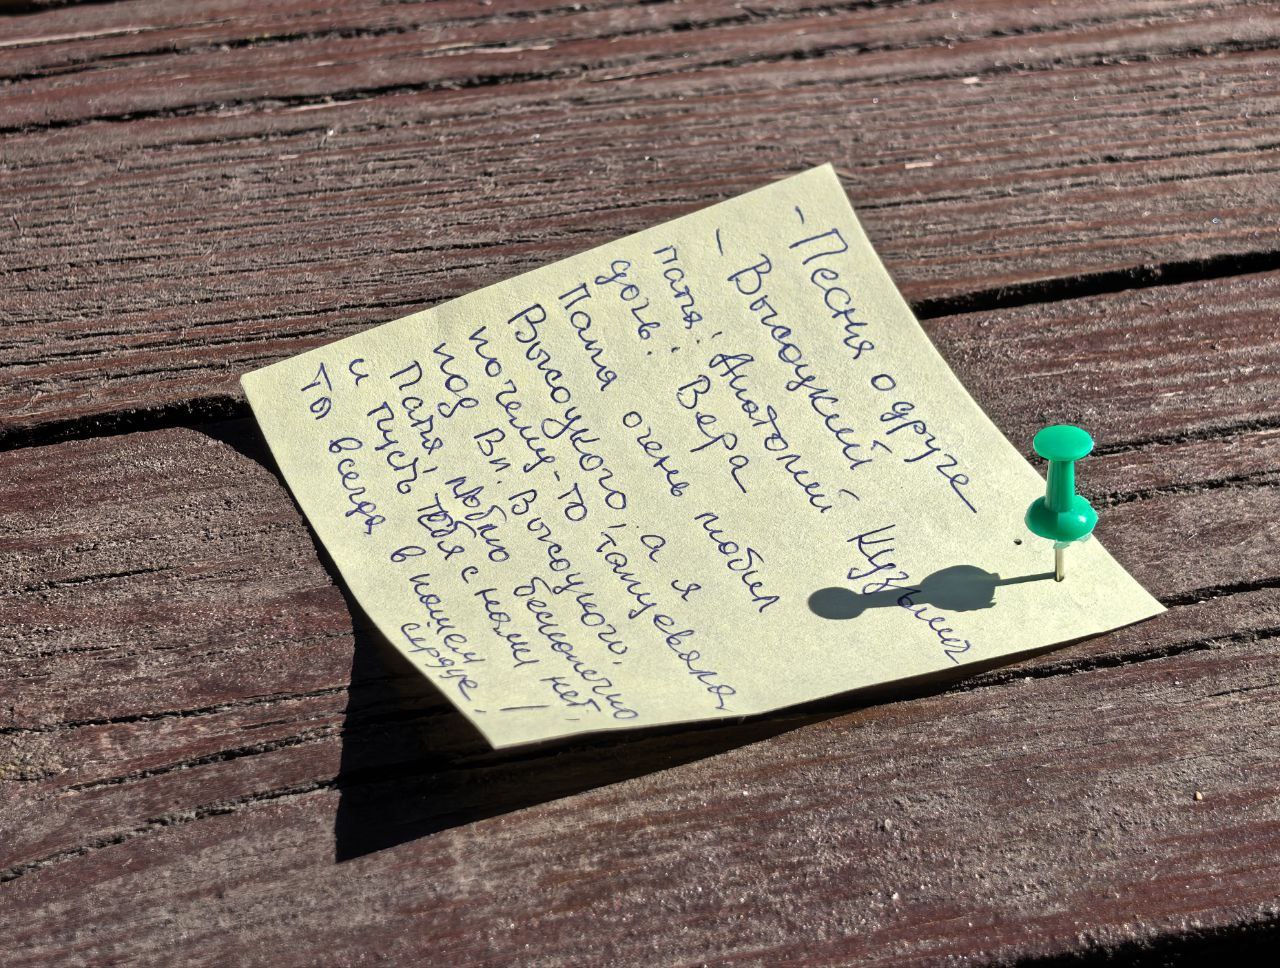 - Песня о друге
- Высоцкий
папа: Анатолий Кузьмич
дочь: Вера
Папа очень любил
Высоцкого, а я
почему-то танцевала
под Вл. Высоцкого.
Папа, люблю бесконечно
и пусть тебя с нами нет,
ты всегда в нашем
сердце!